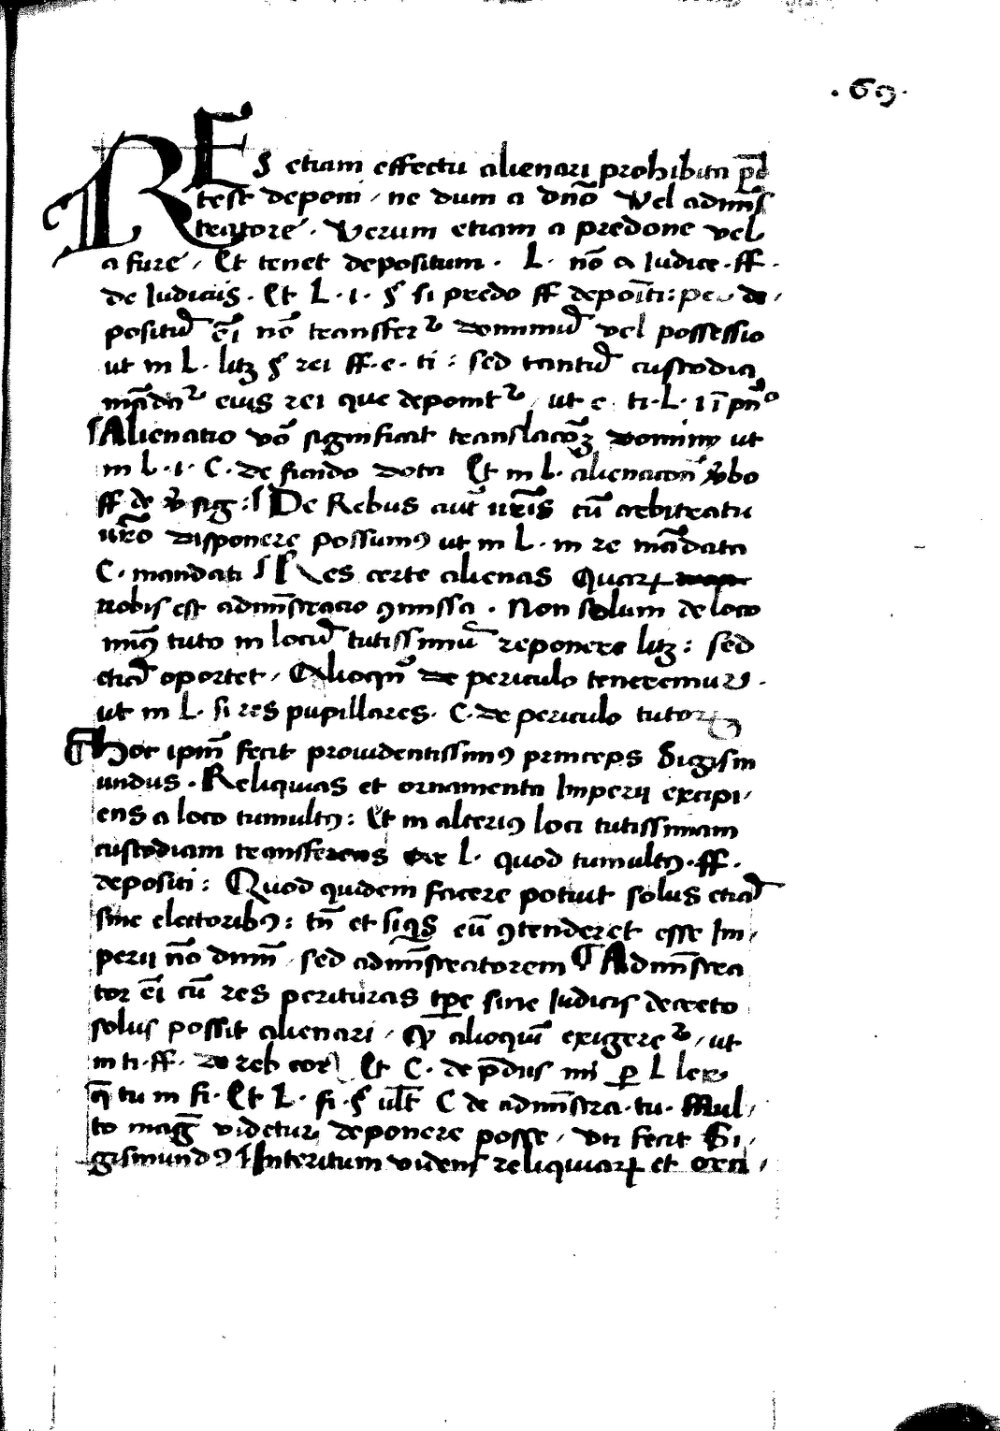 . 69 .
REs etiam effectu alienari prohibita po
test deponi / ne dum a dño Vel admis
tratore . Verum etiam a predone vel
a fure / Et tenet depositum . L . nõ a Judice . ff .
de Judicijs . Et L . i . § si predo ff depoĩti : de /
positũ eĩ nõ transfer² dominiũ vel possessio
ut in L . litz § rei ff . e . ti : sed tantũ custodia
mãda² eius rei que deponit² / ut e ti . L . i ĩ pñ°
¶ Alienatio võ significat translacõꝫ dominij ut
in L . i . C . de fundo dota Et in L . alienacoñ vbo
ff de v sig : ¶ De Rebus aut ñris cũ arbitratu
ñro disponere possumꝰ ut in L . in re mãdata
C . mandati ¶ Res certe alienas Quaꝝ
nobis est adm̃stracio ꝯmissa . Non solum de loco
minꝰ tuto in locũ tutissimũ reponere litz : sed
etiã oportet / Alioqñ de periculo teneremur .
ut in L . si res pupillares . C . de periculo tutor
¶ Hoc ipm̃ fecit prouidentissimꝰ princeps Sigism
undus . Reliquias et ornamenta Imperij excipi /
ens a loco tumultꝰ : Et in alteriꝰ loci tutissimam
custodiam transferens L . quod tumultꝰ . ff .
depositi : Quod quidem facere potuit solus etiã
sine electoribꝰ : tñ et siqs eũ ꝯtenderet esse Im /
perij nõ dñm / sed adm̃stratorem ¶ Adm̃stra
tor eĩ cũ res perituras tpe sine Judicis decreto
solus possit alienari / qꝫ alioquĩ exigere² / ut
in ti . ff . de reb eoꝝ Et C . de p̃dijs mi ꝑ L lex
q̃ tu in fi . Et L . fi . § ult̃ C de adm̃stra . tu . Mul /
to mag̃ videtur deponere posse / uti fecit Si /
gismundꝰ ¶ Interitum videns reliquiaꝝ et orn /